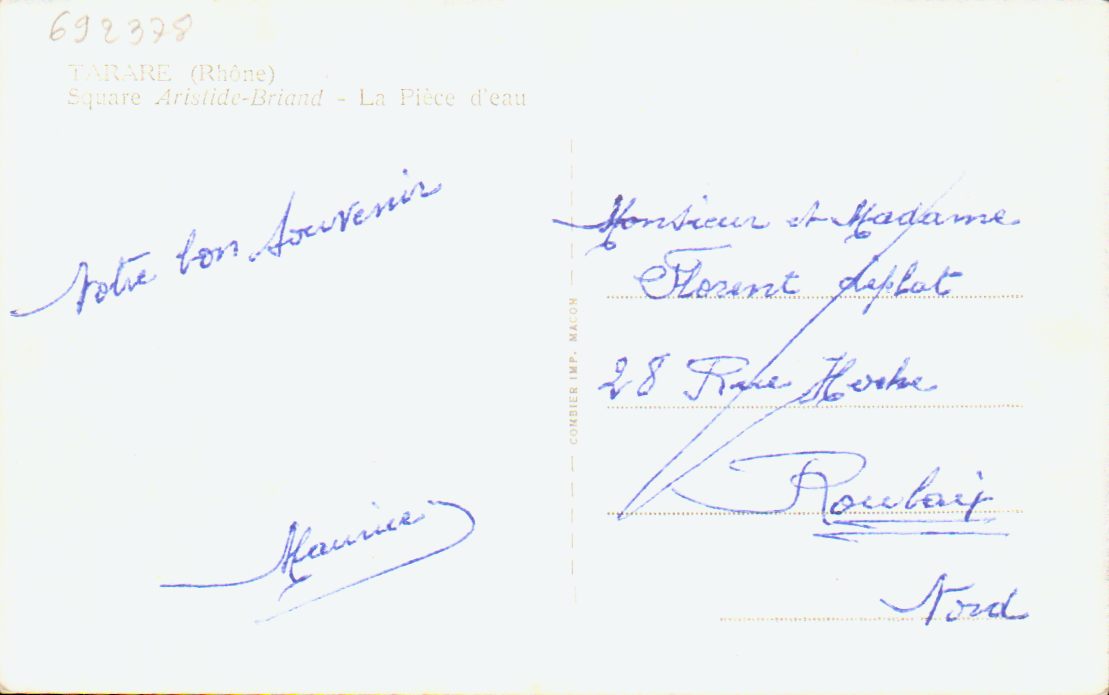 692378
TARARE (Rhône)
Square Aristide-Briand - La Pièce d'eau
Notre bon Souvenir
Maurice
COMBIER IMP. MACON
Monsieur et Madame
Florent deplat
28 Rue Hoche
Roubaix
Nord